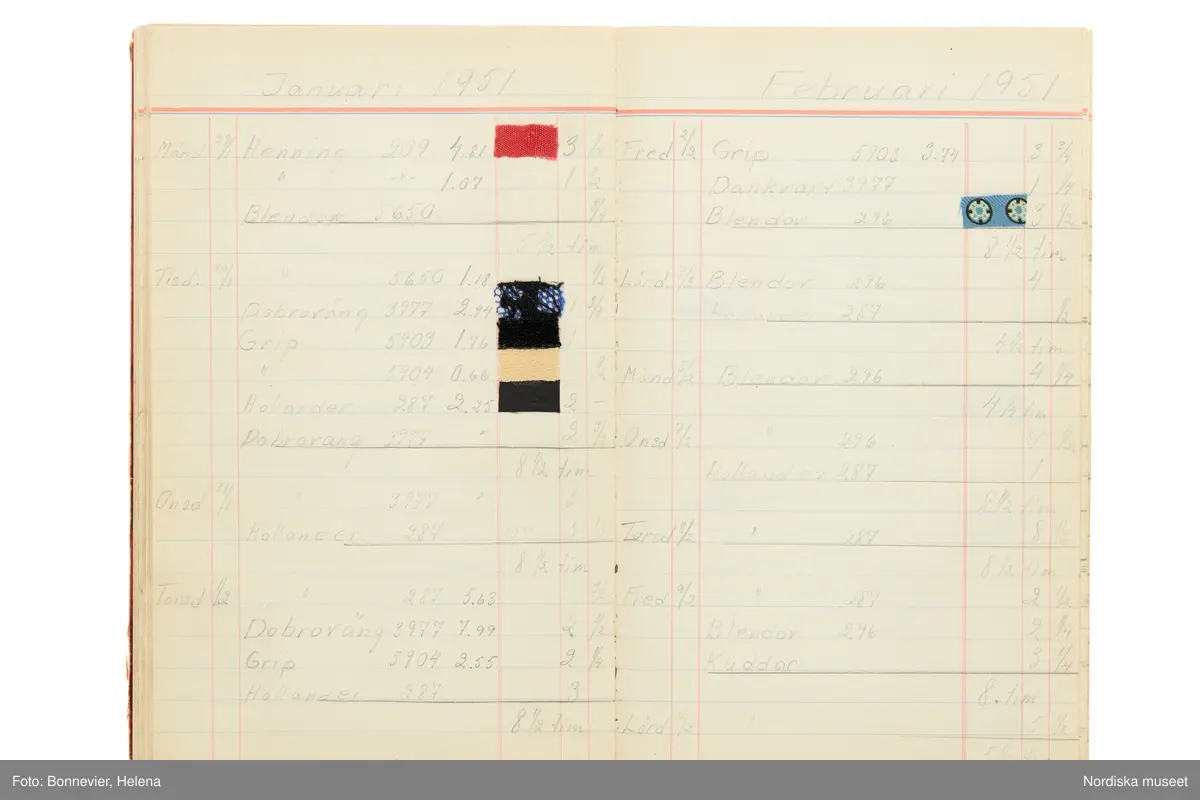 Januari 1951
Månd 29/1 Henning 209 4.81 3 1/4
" " 1.07 1 1/2
Blendor 5650 3/4
5 1/2 tim
Tisd. " 5650 1.18 1/2
Dobroväng 3977 2.94 1 3/4
Grip 5903 1.76 1
" 5904 0.66 1/2
Hollander 287 2.25 2 -
Dobroväng 3977 " 2
8 1/2 tim
Onsd " 3977 "
Hollander 287
8 1/2 tim
Torsd 1/2 " 287 5.63
Dobroväng 3977 7.99 2 1/2
Grip 5904 2.55 2 1/4
Hollander 287 3
8 1/2 tim
Februari 1951
Fred 2/2 Grip 5903 3.74 3 3/4
3977 1 1/4
Blendor 296 3 1/2
8 1/2 tim
Lörd. Blendor 296 4
Hollander 287 1/2
4 1/2 tim
Månd 5/2 Blendor 296 4
4 1/2 tim
Onsd 7/2 " 296
Hollander 287 1
8 1/2 tim
Torsd 8/2 " 287 8 1/2
8 1/2 tim
Fred 9/2 " 287 2 1/2
Blendor 296 2 1/4
Kuddar 3 1/4
8. tim
Lörd "
Foto: Bonnevier, Helena
Nordiska museet